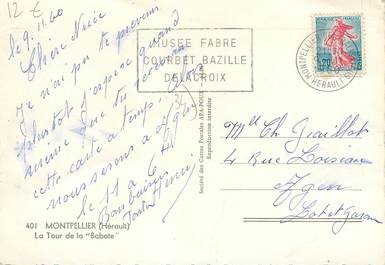 12 €
le 9.11.60
Chère Nièce
Je n'ai pu te prévenir
plustot j'espère quand
même que tu recevras
cette carte à temps,
nous serons à Agen
le 11 à 6 h
Bons baisers
Tonton Henri
401 MONTPELLIER (Hérault)
La Tour de la "Babote"
Société des Cartes Postales APA-POUX
Reproduction interdite
MUSEE FABRE
COURBET BAZILLE
DELACROIX
MONTPELLIER
HERAULT
Mlle Ch. Graillot
4 Rue
Agen
Lot et Garonne